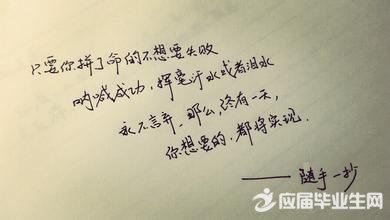 只要你拼了命的不想要失败
呐喊成功，挥毫汗水或者泪水
永不言弃，那么，终有一天，
你想要的，都将实现．
——随手一抄
应届毕业生网